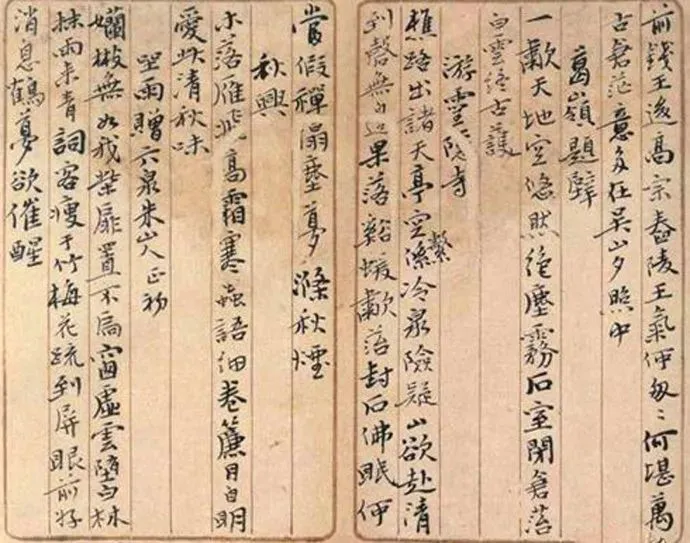 前錢王後高宗春陵王氣何匆匆何堪萬
古蒼茫意多在吳山夕照中
葛嶺題壁
一歗天地空悠然絕塵霧石室閉蒼苔
白雲終古護
游雲隱寺
樵路出諸天亭空繫冷泉險疑山欲赴清
到磬無邊果落谿猨歗苔封石佛眠何
當假禪榻塵夢滌秋煙
秋興
木落雁飛高霜寒蟲語細卷簾月自明
愛此清秋味
望雨贈六泉朱山人正初
嬾散無如我柴扉置不扃窗虛雲墮白林
抹雨來青詞客瘦于竹梅花疏到屏眼前好
消息鶴夢欲催醒